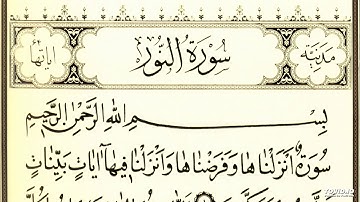 مدنية
سورة النور
آياتها
بِسْمِ اللهِ الرَّحْمٰنِ الرَّحِيمِ
سُورَةٌ اَنْزَلْنَاهَا وَفَرَضْنَاهَا وَاَنْزَلْنَا فِيهَٓا اٰيَاتٍ بَيِّنَاتٍ